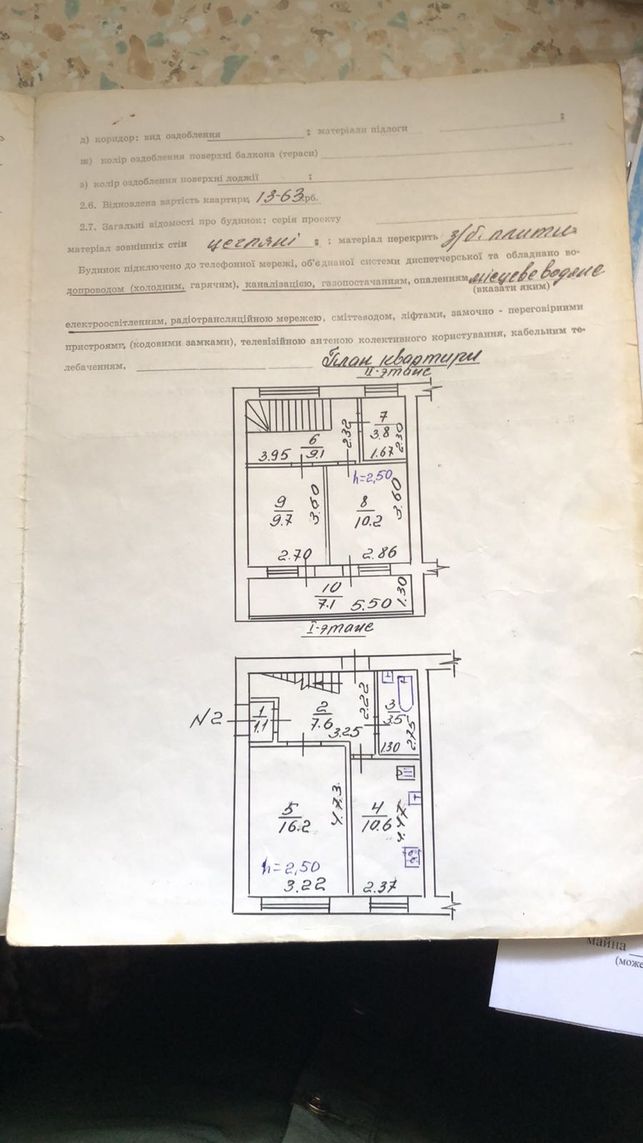 д) коридор: вид оздоблення ; матеріали підлоги ;
ж) колір оздоблення поверхні балкона (тераси)
з) колір оздоблення поверхні лоджії ;
2.6. Відновлена вартість квартири, 13-63 крб.
2.7. Загальні відомості про будинок: серія проекту
матеріал зовнішніх стін цегляні ; матеріал перекрить з/б. плити
Будинок підключено до телефонної мережі, об'єднаної системи диспетчерської та обладнано во-
допроводом (холодним, гарячим), каналізацією, газопостачанням, опаленням місцеве водяне
(вказати яким)
електроосвітленням, радіотрансляційною мережею, сміттєводом, ліфтами, замочно - переговірними
пристроями, (кодовими замками), телевізійною антеною колективного користування, кабельним те-
лебаченням,
План квартири
II-этаж
6/9.1 3.95 2.32
7/3.8 1.67 2.30
h=2,50
9/9.7 3.60 2.70
8/10.2 3.60 2.86
10/7.1 5.50 1.30
I-этаж
N2
1/1.1
2/7.6 2.22 3.25
3/3.5 130 2.75
5/16.2 4.73
4/10.6 4.47
h=2,50
3.22 2.37
майна
(може